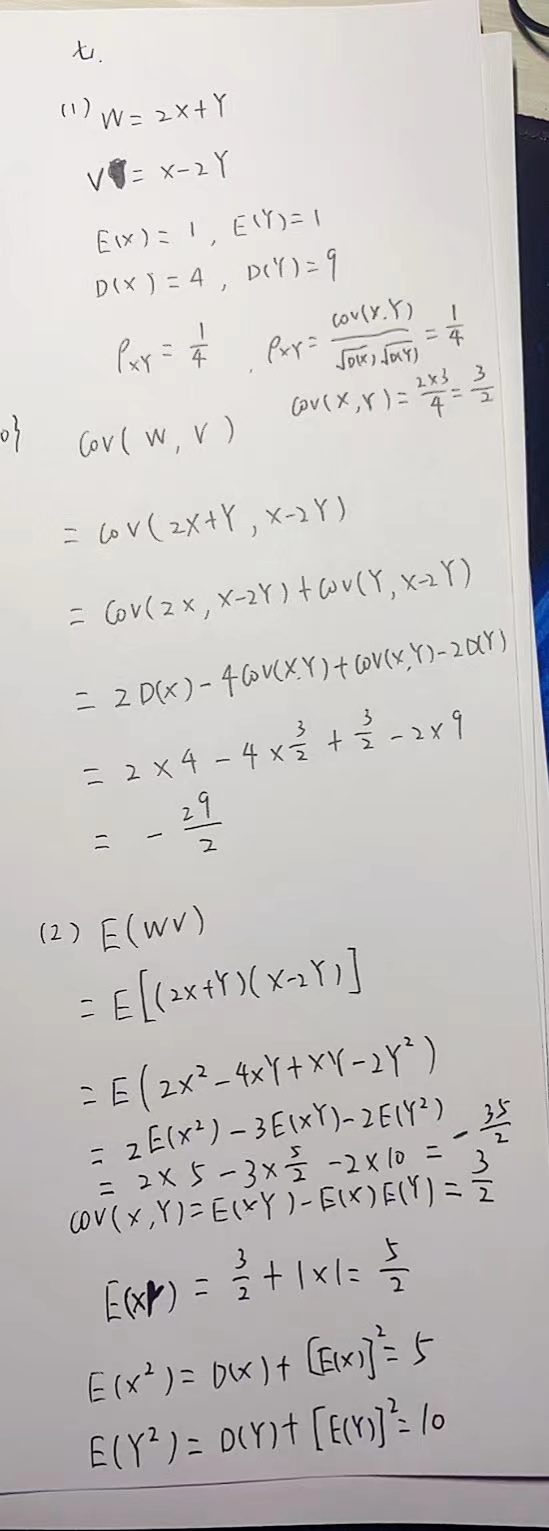 七.
(1) W = 2X+Y
V = X-2Y
E(X) = 1 , E(Y)=1
D(X) = 4 , D(Y)=9
ρXY = 1/4 , ρXY = cov(X,Y)/(√D(X) √D(Y)) = 1/4
cov(X,Y) = 2×3/4 = 3/2
Cov( W , V )
= Cov(2X+Y , X-2Y)
= Cov(2X, X-2Y) + Cov(Y, X-2Y)
= 2D(X) - 4Cov(X.Y) + Cov(X,Y) - 2D(Y)
= 2×4 - 4×3/2 + 3/2 - 2×9
= - 29/2
(2) E(WV)
= E[(2X+Y)(X-2Y)]
= E(2X²-4XY+XY-2Y²)
= 2E(X²) - 3E(XY) - 2E(Y²)
= 2×5 - 3×5/2 - 2×10 = - 35/2
cov(X,Y) = E(XY) - E(X)E(Y) = 3/2
E(XY) = 3/2 + 1×1 = 5/2
E(X²) = D(X) + [E(X)]² = 5
E(Y²) = D(Y) + [E(Y)]² = 10